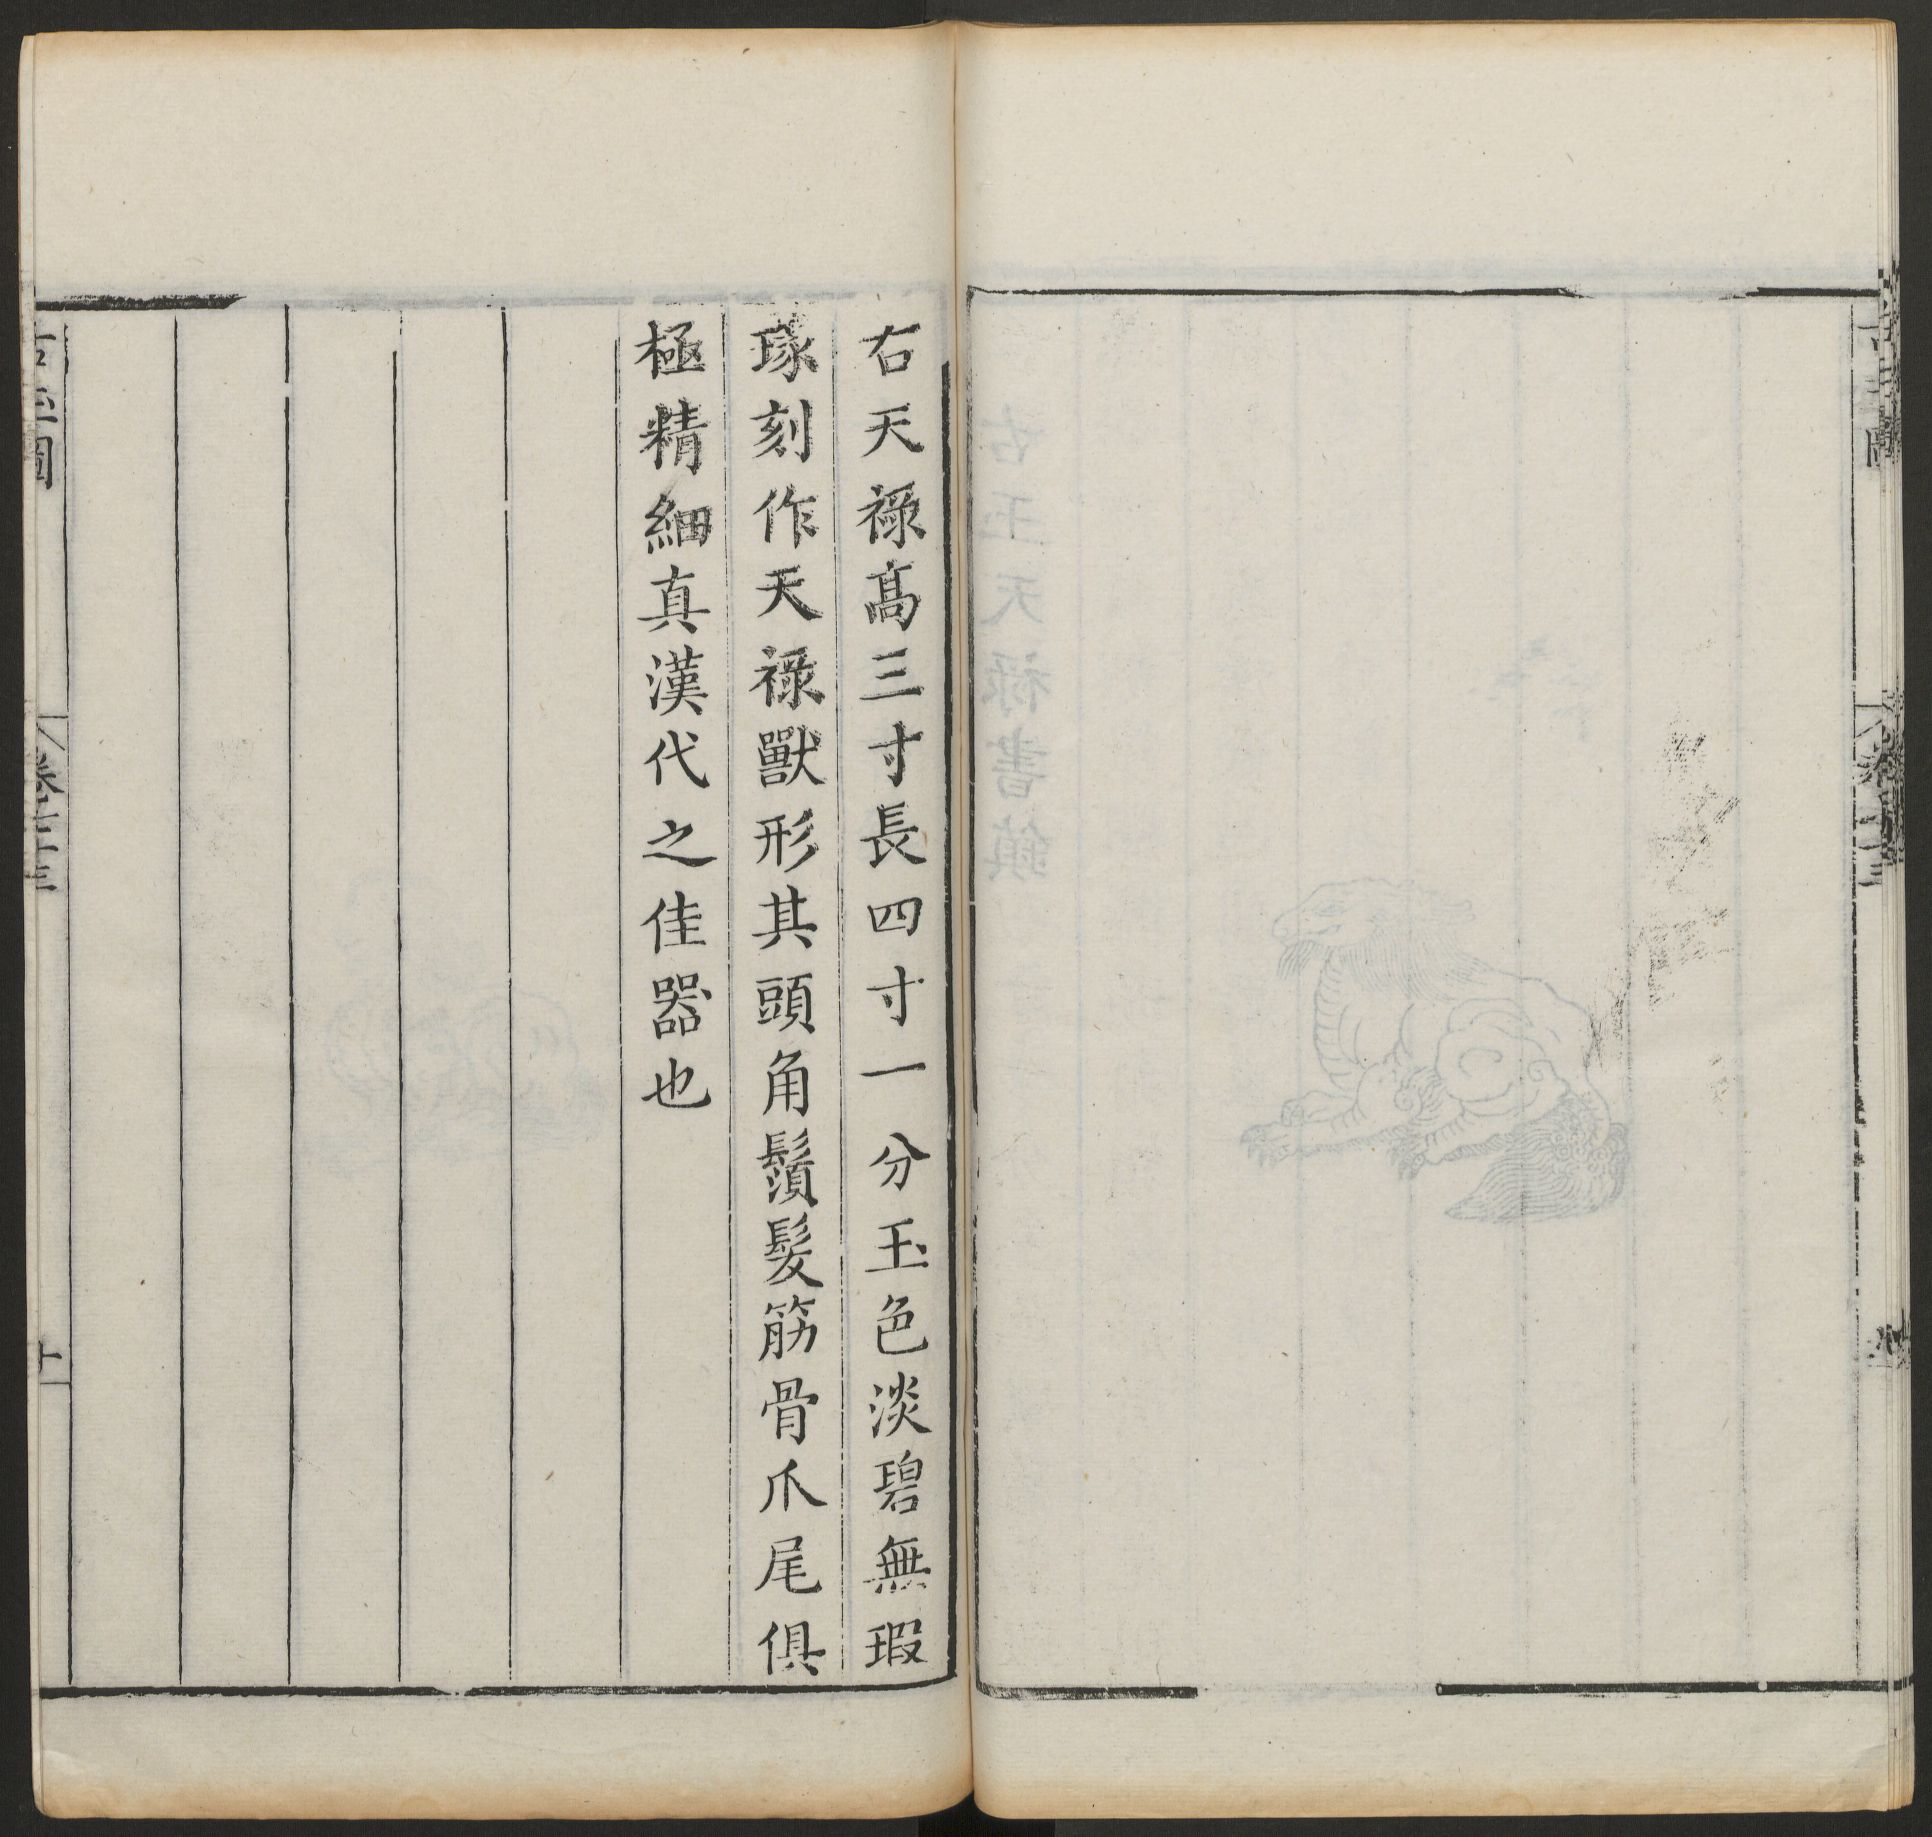 右天祿髙三寸長四寸一分玉色淡碧無瑕
瑑刻作天祿獸形其頭角鬚髮筋骨爪尾俱
極精細真漢代之佳器也
古玉圖
卷
十